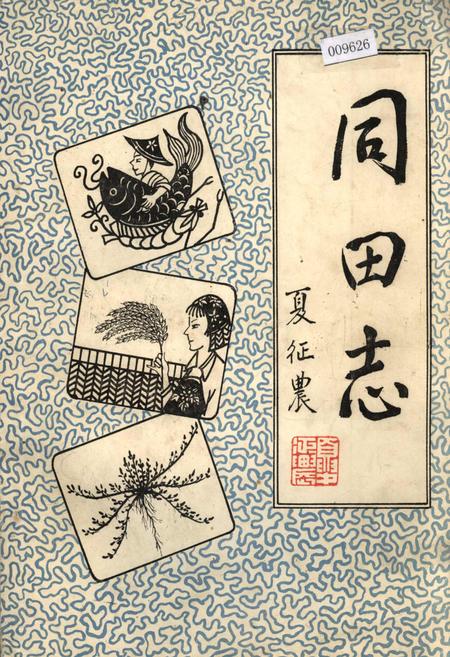 009626
同田志
夏征農